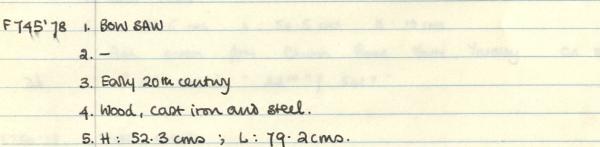 F745'78 1. BOW SAW
2. -
3. Early 20th century
4. Wood, cast iron and steel.
5. H: 52.3 cms ; L: 79.2 cms.